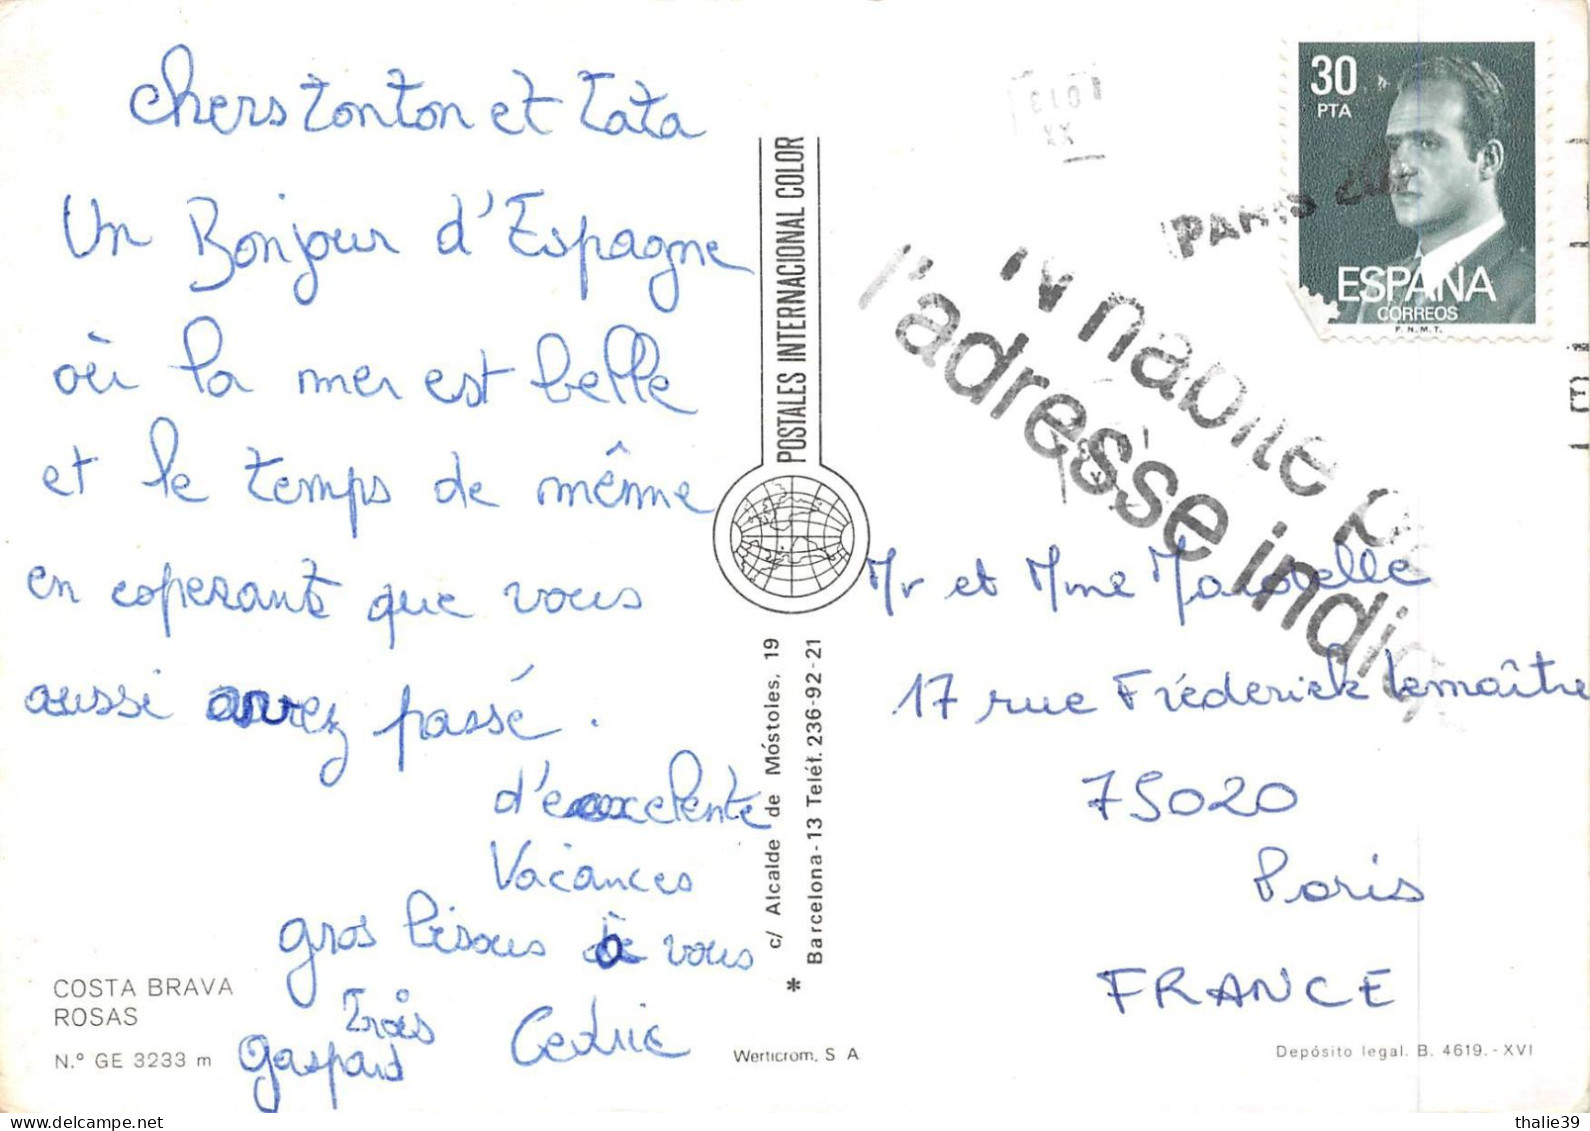 chers tonton et tata
Un Bonjour d'Espagne
où la mer est belle
et le temps de même
en esperant que vous
aussi avez passé.
d'excelente
Vacances
gros bisous à vous
Trois
Gaspard Cedric
COSTA BRAVA
ROSAS
N.º GE 3233 m
POSTALES INTERNACIONAL COLOR
c/ Alcalde de Móstoles, 19
Barcelona-13 Teléf. 236-92-21
*
Werticrom, S A
30
PTA
ESPAÑA
CORREOS
F.N.M.T.
PARIS
N habite
l'adresse
Mr et Mme
17 rue Fréderick Lemaître
75020
Paris
FRANCE
Depósito legal. B. 4619.-XVI
thalie39